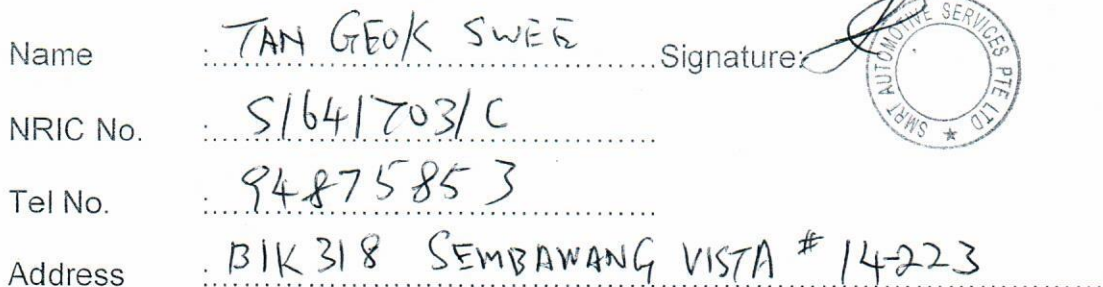 Name : TAN GEOK SWEE Signature:
SMRT AUTOMOTIVE SERVICES PTE LTD ★
NRIC No. : S1641703/C
Tel No. : 94875853
Address : BlK 318 SEMBAWANG VISTA # 14-223